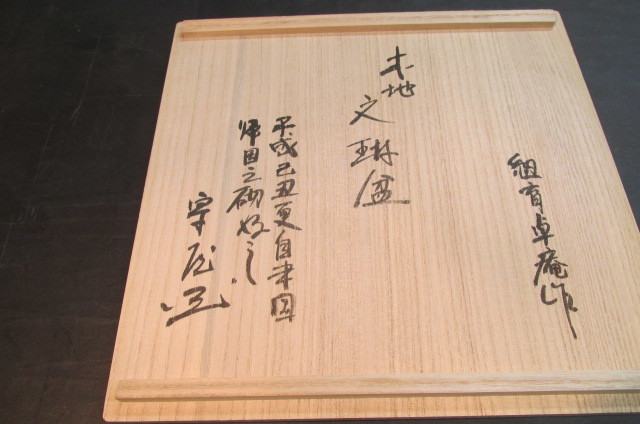 木地
文琳盆
組育卓庵作
平成己丑夏自米国
帰国之砌好之
宗屋